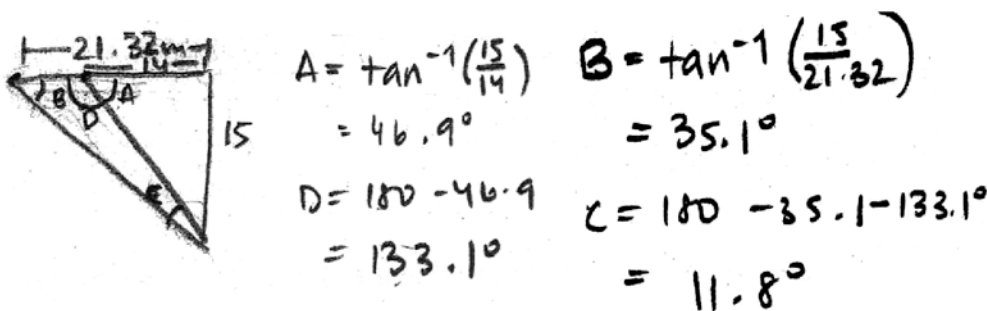 21.32m
14
B
A
D
15
E
A = tan⁻¹(15/14)
= 46.9°
D = 180 - 46.9
= 133.1°
B = tan⁻¹(15/21.32)
= 35.1°
C = 180 - 35.1 - 133.1°
= 11.8°